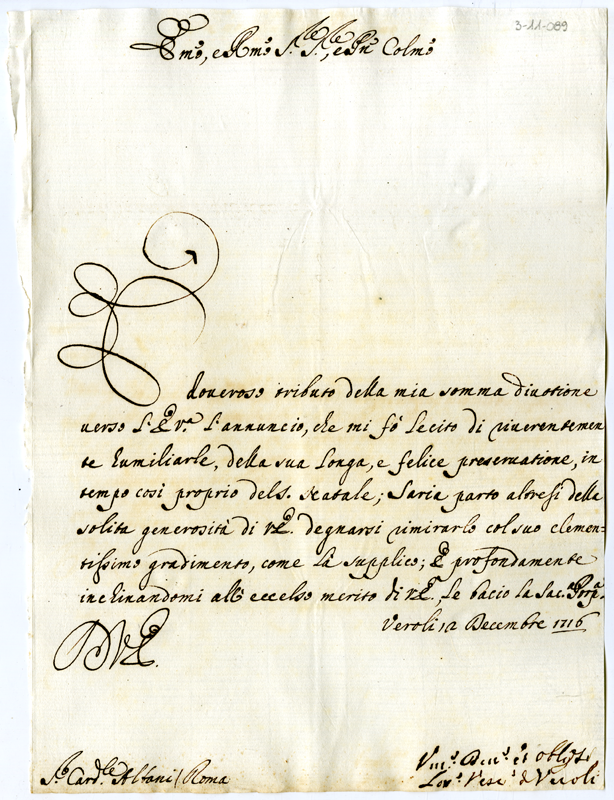 3-11-089
Emo, e Rmo S.re S.re, e Pne Colmo
È doveroso tributo della mia somma divotione
verso l'E. V.ra l'annuncio, che mi fò lecito di riverentemen
te humiliarle, della sua longa, e felice preservatione, in
tempo così proprio del S. Natale; Saria parto altresì della
solita generosità di V.E. degnarsi rimirarlo col suo clemen=
tissimo gradimento, come la supplico; E profondamente
inchinandomi all'eccelso merito di V.E., le bacio la Sac.a Porp.a
Veroli 12 Decembre 1716
D V.E.
S.r Card.le Albani / Roma
Um.o Dev.o et obblig.
Lor.o Vesc.o di Veroli